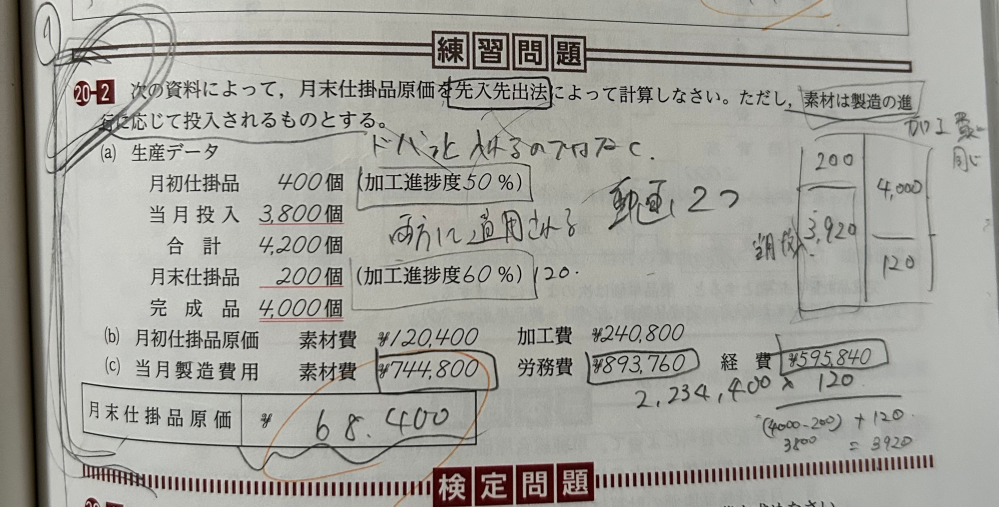 練習問題
20-2 次の資料によって，月末仕掛品原価を先入先出法によって計算しなさい。ただし，素材は製造の進
行に応じて投入されるものとする。
加工費と
同じ
(a) 生産データ
月初仕掛品 400個 (加工進捗度50％)
当月投入 3,800個
合計 4,200個
月末仕掛品 200個 (加工進捗度60％) 120
完成品 4,000個
両方に適用される
動画2つ
200
3,920
4,000
120
(b) 月初仕掛品原価 素材費 ¥120,400 加工費 ¥240,800
(c) 当月製造費用 素材費 ¥744,800 労務費 ¥893,760 経費 ¥595,840
2,234,400 × 120
(4000-200) + 120
3800 = 3920
月末仕掛品原価 ¥ 68.400
検定問題